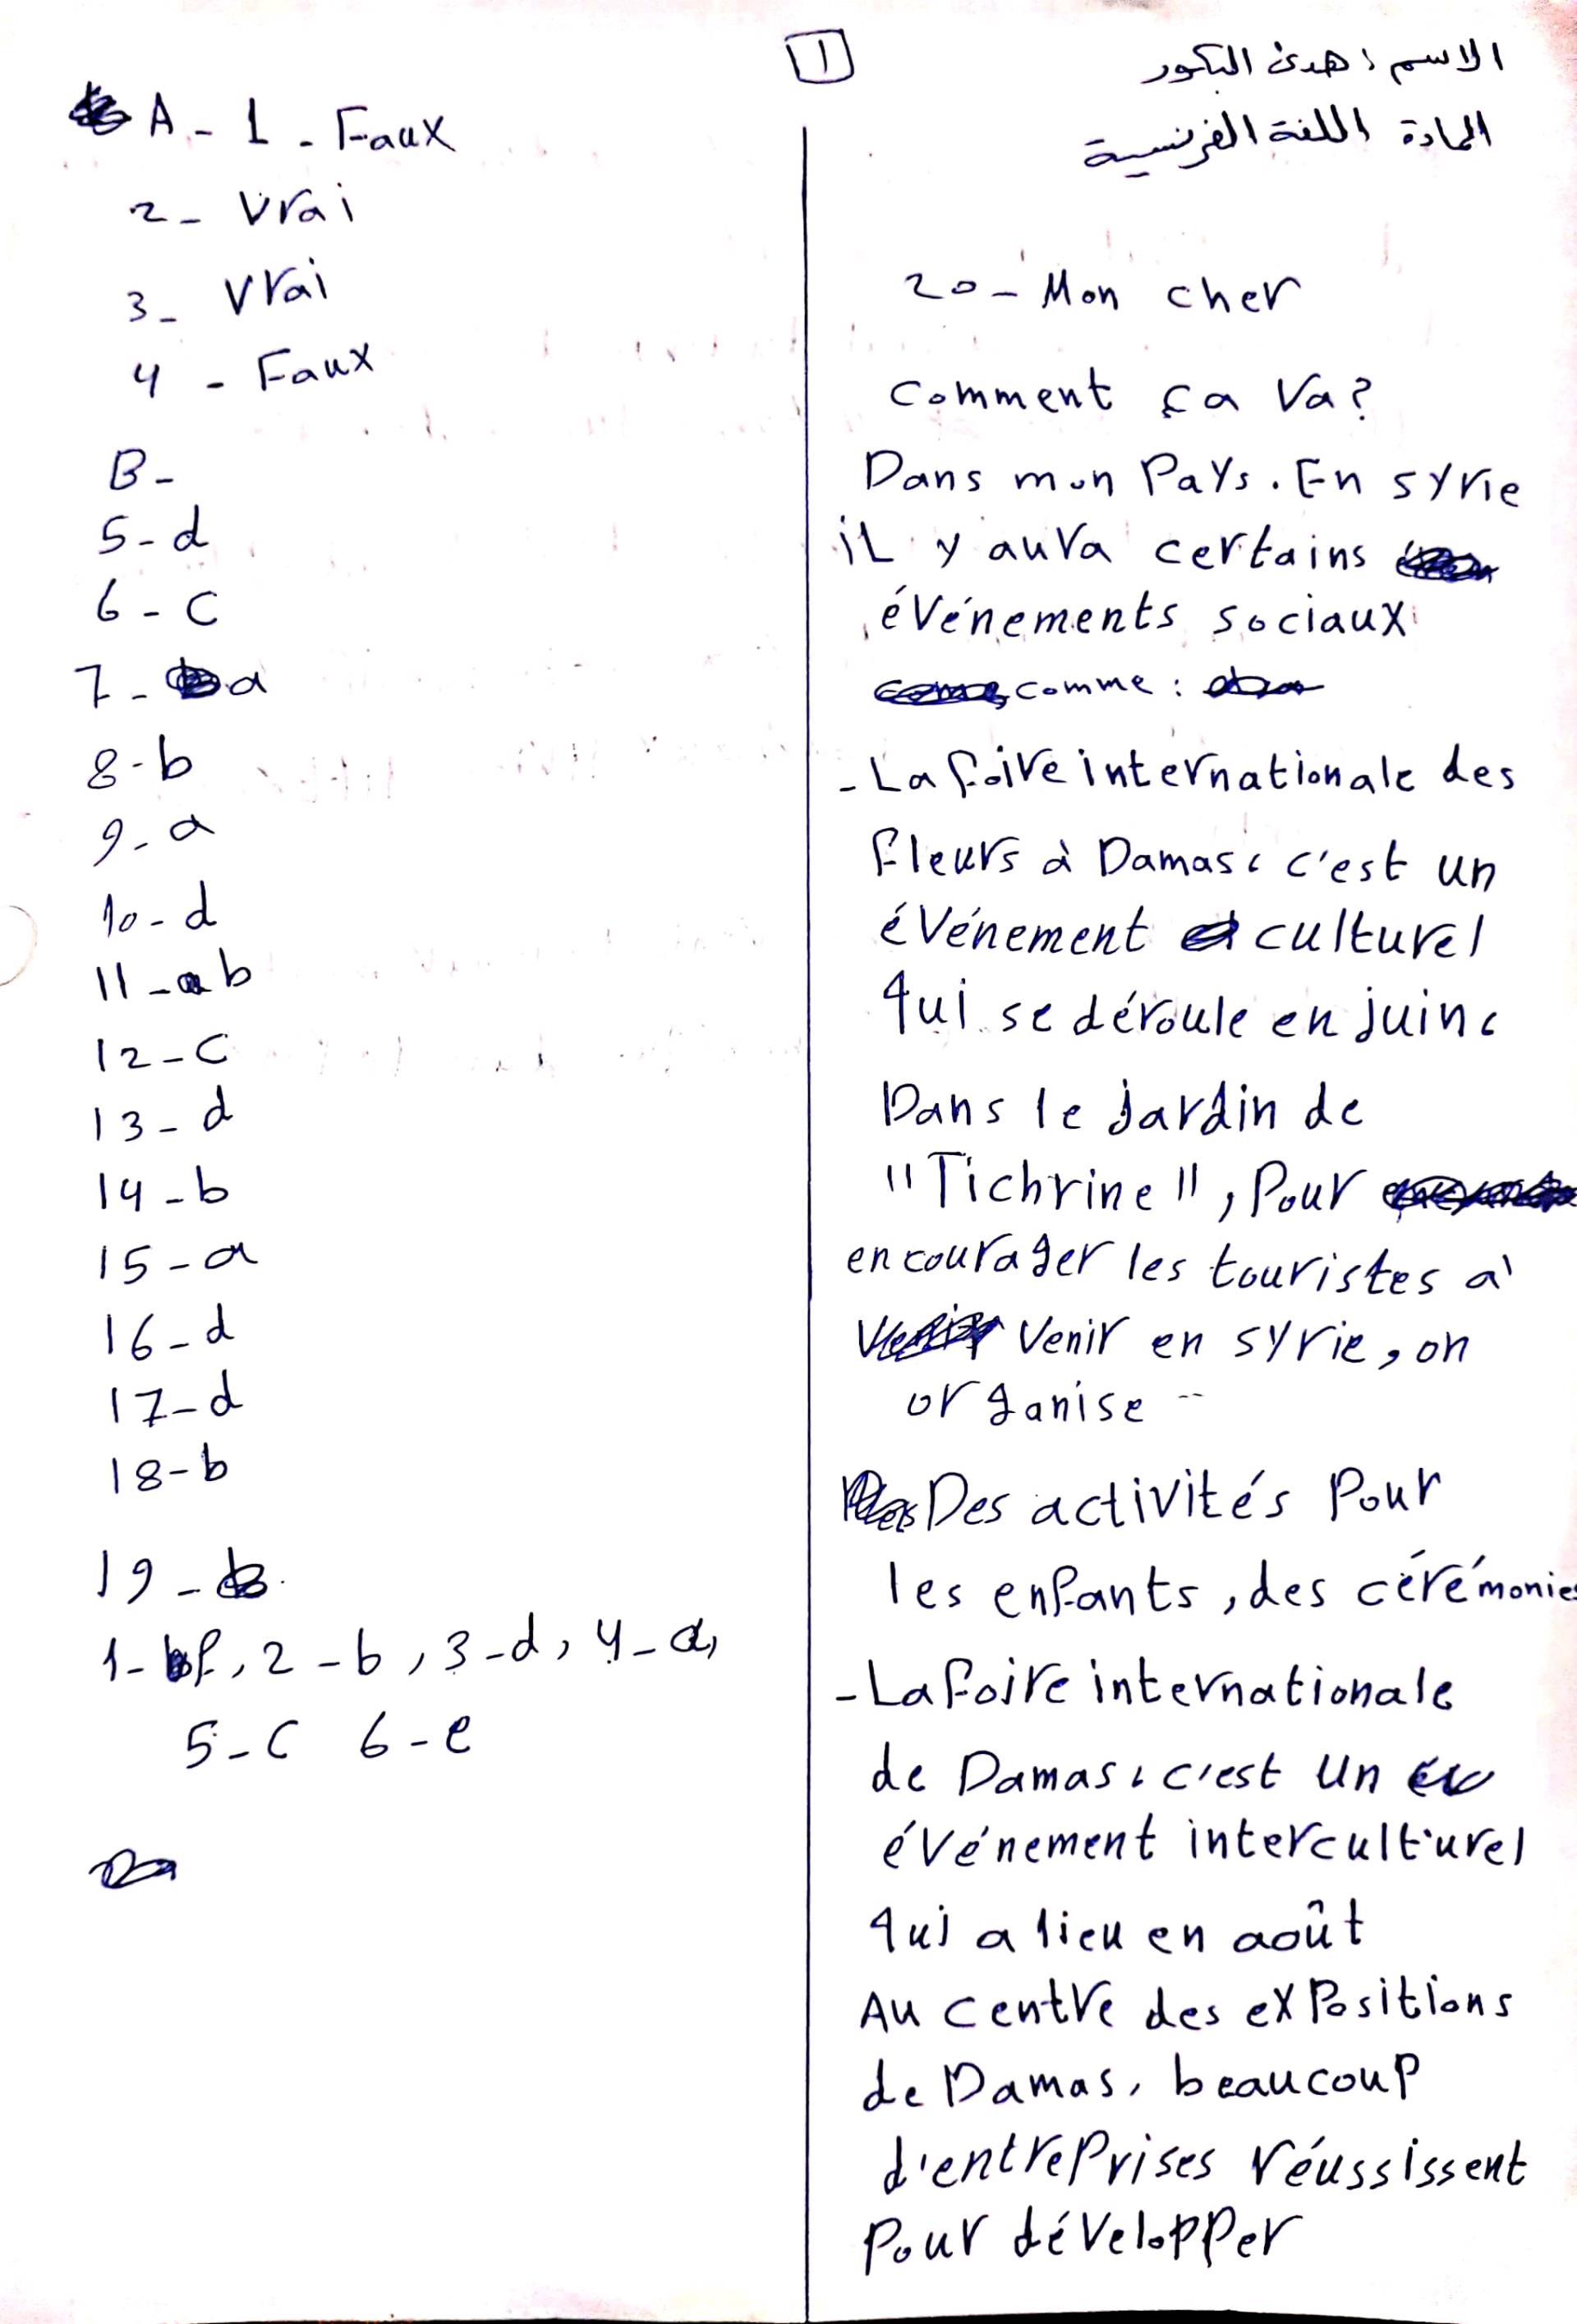 1
الاسم : هدى البكور
المادة اللغة الفرنسية
A - 1 - Faux
2 - Vrai
3 - Vrai
4 - Faux
B -
5 - d
6 - c
7 - a
8 - b
9 - a
10 - d
11 - b
12 - c
13 - d
14 - b
15 - a
16 - d
17 - d
18 - b
19 -
1 - f, 2 - b, 3 - d, 4 - a,
5 - c 6 - e
20 - Mon cher
Comment ça va?
Dans mon Pays. En syrie
il y aura certains
événements sociaux
comme :
- La foire internationale des
fleurs à Damas, c'est un
événement culturel
qui se déroule en juin,
Dans le jardin de
"Tichrine", Pour
encourager les touristes à
venir en syrie, on
organise ..
Des activités Pour
les enfants, des cérémonies
- La foire internationale
de Damas, c'est un
événement interculturel
qui a lieu en août
Au centre des expositions
de Damas, beaucoup
d'entreprises réussissent
Pour développer